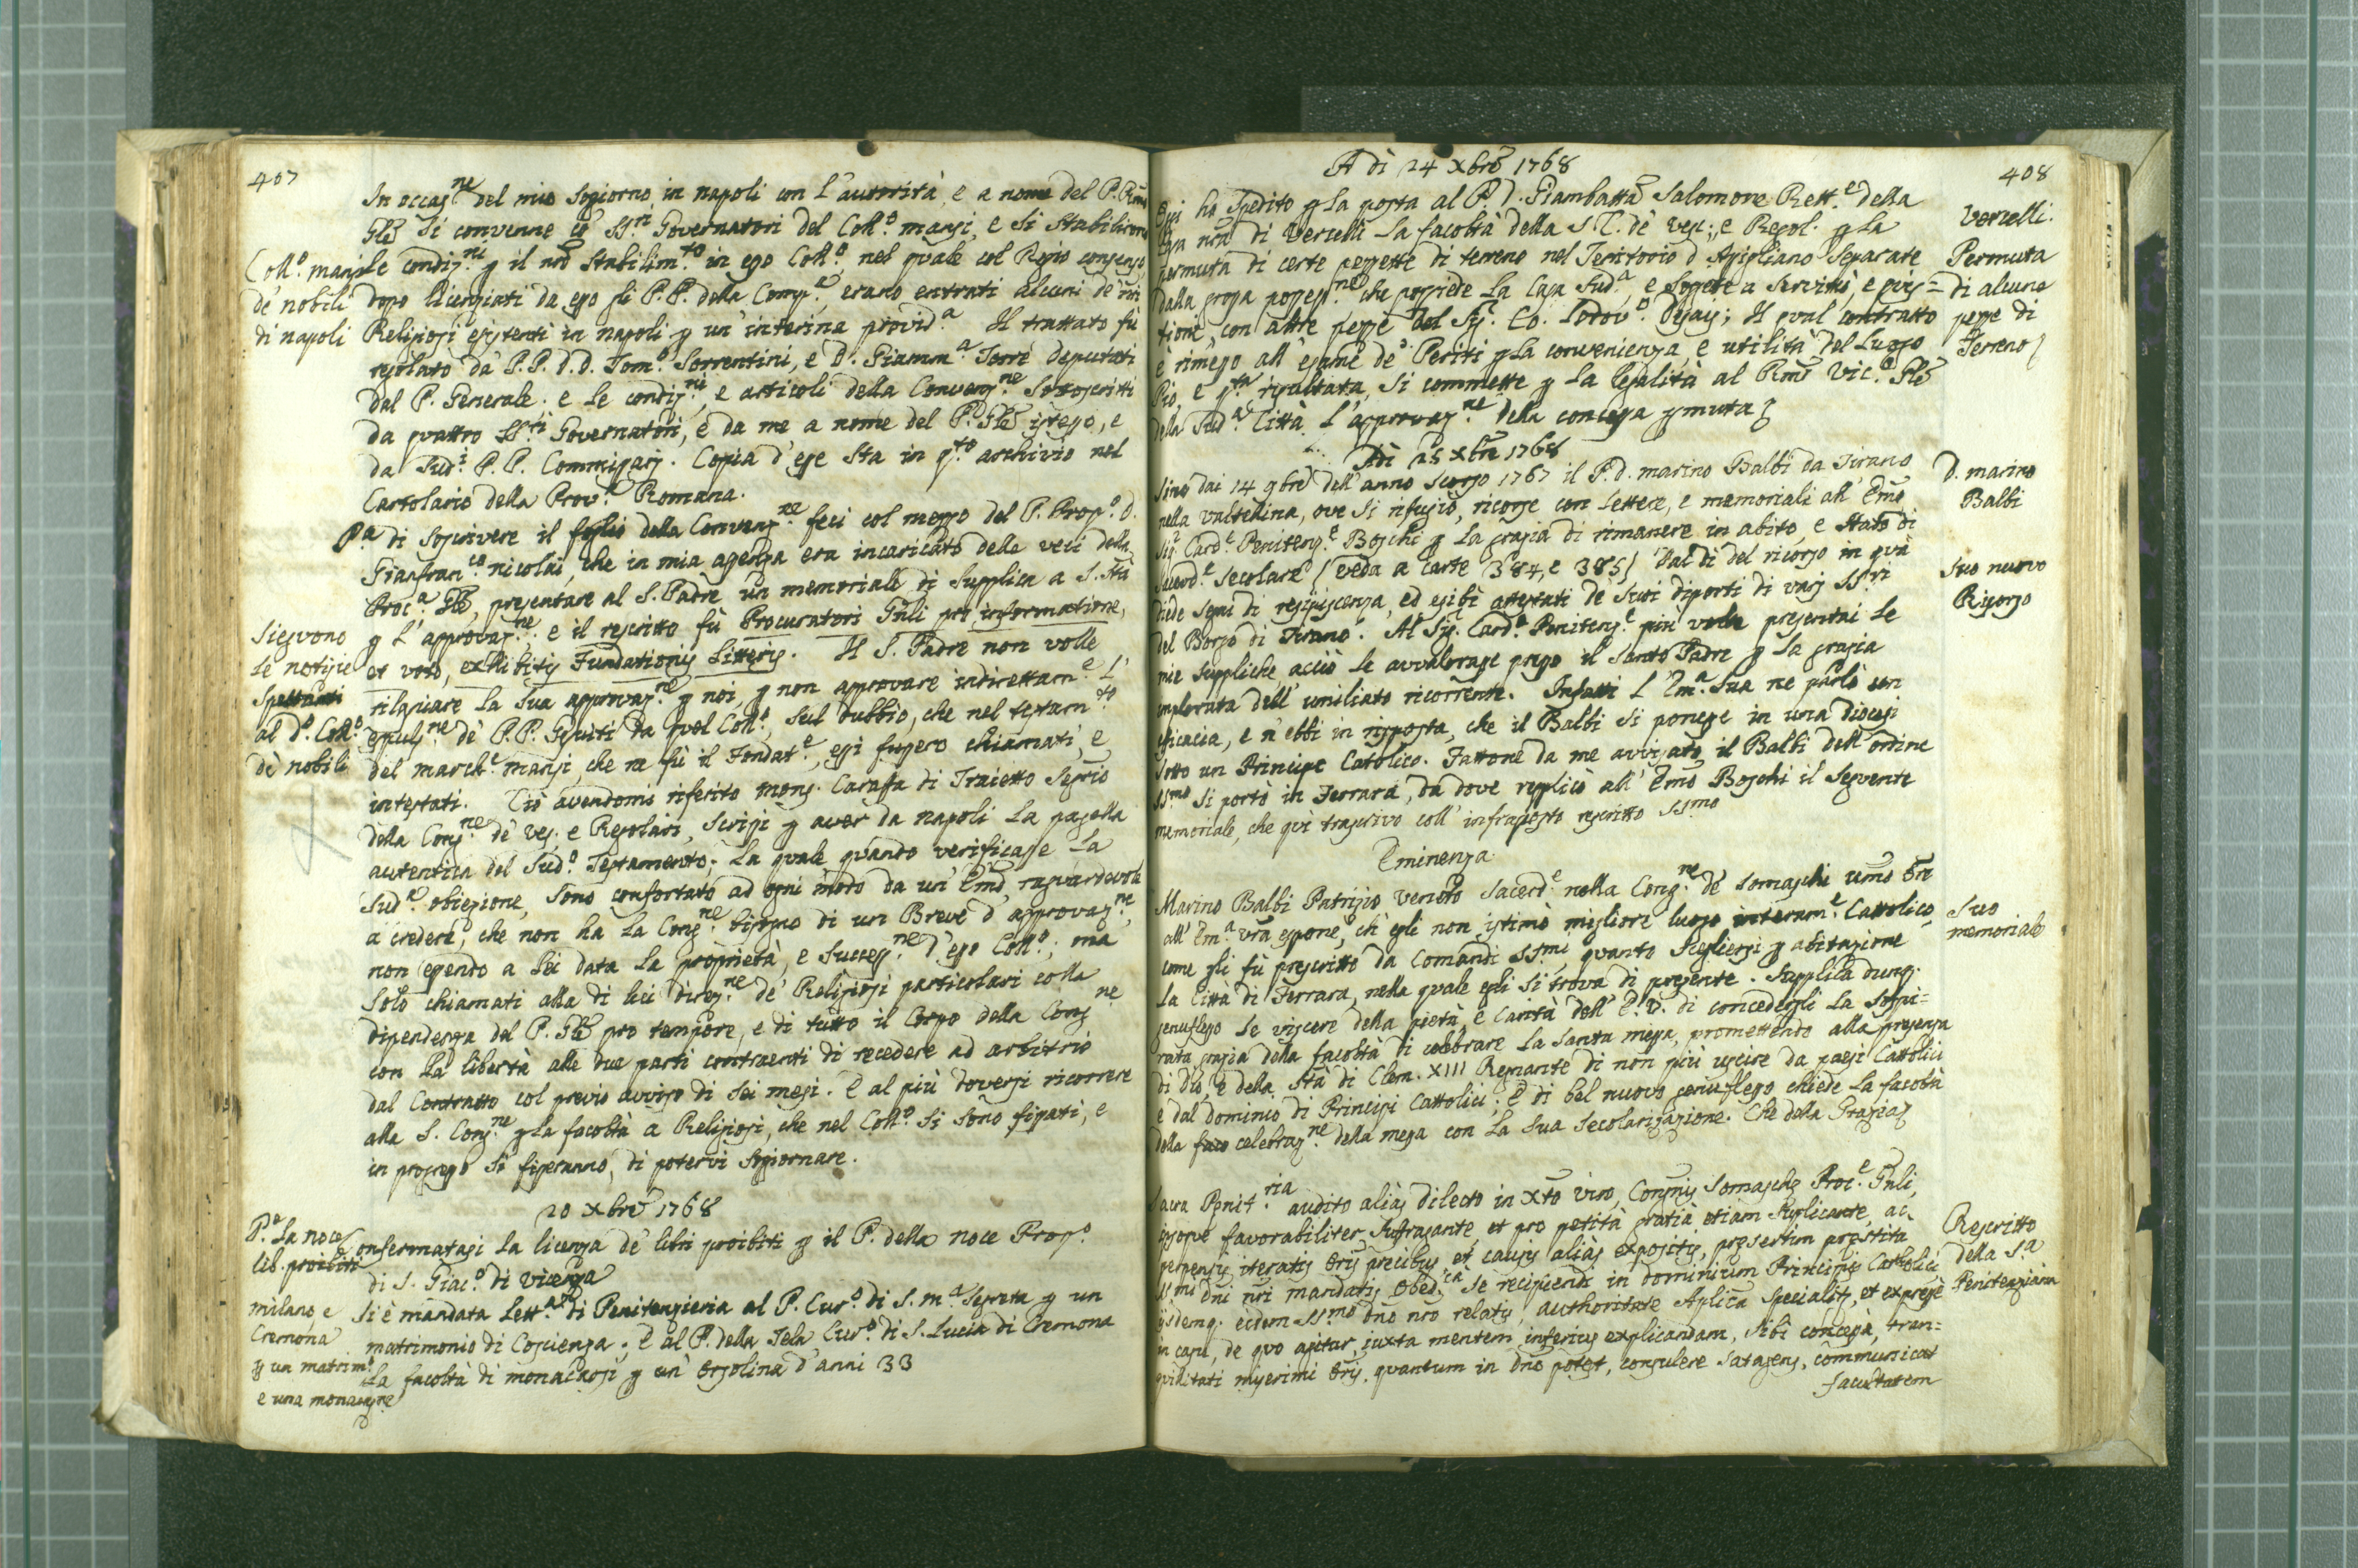 407
In occas.ne del mio sogiorno in napoli con l'autorità, e a nome del P. Rmo
Gle si convenne co' SS.ri Governatori del Coll.o mansi, e si stabilirono
Coll.o mansi
de nobili
di napoli
le condiz.ni p il nro stabilim.to in esso Coll.o, nel quale col Regio consenso,
dopo licenziati da esso gli P.P. della Comp.a, erano entrati alcuni de nri
Religiosi esistenti in napoli p un' interina provid.a Il trattato fù
regolato da P.P. D.D. Tom.o Sorrentini, e D. Giamm.a Torre deputati
dal P. Generale. e le condiz.ni, e articoli della Convenz.ne sottoscritti
da quattro SS.ri Governatori, e da me a nome del P. Gle istesso, e
da sud.i P.P. Commissarj. Copia d'esse sta in q.to archivio nel
Cartolario della Prov.a Romana.
P.a di soscrivere il foglio della Convenz.ne feci col mezzo del P. Prop.o D.
Gianfran.co nicolai, che in mia assenza era incaricato delle veci della
Proc.a Gle, presentare al S. Padre un memoriale di supplica a S. Stà
p l'approvaz.ne: e il rescritto fù Procuratori Gnli pro informatione,
et voto, exhibitis Fundationis litteris. Il S. Padre non volle
Sieguono
le notizie
spettanti
al d.o Coll.o
dè nobili
rilasciare la sua approvaz.ne p noi, p non approvare indirettam.e l'
espuls.ne dè P.P. Gesuiti da quel Coll.o, sul dubbio, che nel testam.to
del march.e mansi, che ne fù il Fondat.e, essi fussero chiamati, e
intestati. Ciò avendomi riferito mons. Caraffa di Traietto Segrio
della Cong.ne dè Ves. e Regolari, scrissi p aver da napoli la pagella
autentica del sud.o Testamento; la quale quando verificasse la
sud.a obiezione, sono confortato ad ogni modo da un Emo raguardevole
a credere, che non ha la Cong.ne bisogno di un Breve d'approvaz.ne,
non essendo a lei data la proprietà, e success.ne d'esso Coll.o; ma
solo chiamati alla di lui direz.ne dè Religiosi particolari colla
dipendenza dal P. Gle pro tempore, e di tutto il Corpo della Cong.ne
con la libertà alle due parti contraenti di recedere ad arbitrio
dal Contratto col previo avviso di sei mesi. E al più doversi ricorrere
alla S. Cong.ne p la facoltà a Religiosi, che nel Coll.o si sono fissati, e
in progresso si fisseranno, di potervi sogiornare.
20 Xbre 1768
P. La noce
lib. proibiti
Confermatasi la licenza dè libri proibiti p il P. della noce Prop.o
di S. Giac.o di Vicenza
milano, e
Cremona
p un matrim.o
e una monacaz.ne
Si è mandata Lett.a di Penitenzieria al P. Cur.o di S. m.a Segreta p un
matrimonio di Coscienza; E al P. della Tela Cur.o di S. Lucia di Cremona
la facoltà di monacarsi p un' Orsolina d'anni 33
408
A dì 24 Xbre 1768
Oggi ho spedito p la posta al P. D. Giambatta Salomone Rett.e della
Casa nra di Vercelli la facoltà della S. C. dè Ves:, e Regol. p la
permuta di certe pezzette di terreno nel Teritorio d'Apigliano separate
dalla grossa possess.ne che possiede la Casa sud.a, e sogete a servitù, e ques=
tioni, con altre pezze del Sig. Co. Lodov.o; Il qual contratto
è rimesso all'esame dè Periti p la convenienza, e utilità del Luogo
Pio, e q.ta risultata, si commette p la legalità al Rmo Vic.o Gle
della sud.a Città l'approvaz.ne della concessa pmuta
Vercelli.
Permuta
di alcune
pezze di
Terreno
Adì 25 Xbre 1768
Sino dai 14 9bre dell'anno scorso 1767 il P. D. marino Balbi da Tirano
nella Valtellina, ove si rifugiò, ricorse con lettere, e memoriali all'Emo
Sig.r Card.e Penitenz.e Boschi p la grazia di rimanere in abito, e stato di
Sacerd.e secolare (veda a carte 384, e 385) Dal dì del ricorso in quà
diede segni di resipiscenza, ed esibì attestati dè suoi diporti di varj SS.ri
del Borgo di Tirano. Al Sig. Card.e Penitenz.e più volte presentai le
mie suppliche, acciò le avvalorasse presso il Santo Padre p la grazia
implorata dell'umiliato ricorrente. Infatti l'Em.a sua ne parlò con
efficacia, e n'ebbi in risposta, che il Balbi si ponesse in una Diocesi
sotto un Principe Catolico. Fattone da me avvisato il Balbi dell'ordine
SS.mo si portò in Ferrara, da dove replicò all'Emo Boschi il seguente
memoriale, che quì trascrivo coll'infraposto rescritto SS.mo
D. marino
Balbi
Suo nuovo
Ricorso
Eminenza
Marino Balbi Patrizio veneto Sacerd.e nella Cong.ne dè Somaschi umo Ore
all'Em.a vra espone, ch'egli non istimò migliore luogo interam.e Cattolico,
come gli fù prescritto da Comandi SS.mi, quanto scegliersi p abitazione
la Città di Ferrara, nella quale egli si trova di presente. Supplica dunq.
genuflesso le viscere della pietà, e Carità dell'E.V. di concedergli la sospi=
rata grazia della facoltà di celebrare la Santa messa, promettendo alla presenza
di Dio, e della Stà di Clem. XIII Regnante di non più uscire da paesi Cattolici
e dal dominio di Principi Cattolici; E di bel nuovo genuflesso chiede la facoltà
della celebraz.ne della messa con la sua Secolarizazione. Che della Grazia
Suo
memoriale
Sacra Pnit.ria audito aliàs dilecto in Xto viro, Congnis Somaschæ Proc.e Gnli,
ipsoque favorabiliter sufragante, et pro petità gratià etiam suplicante, ac
perpensis iteratis Oris precibus et causis aliàs expositis, præsertim præstita
SS.mi Dni nri mandatis Obed.ia se recipiendi in dominium Principis Catholici
ijsdemq. eidem SS.mo Dno nro relatis, authoritate Aplica specialiter, et expresse
in casu, de quo agitur, iuxta mentem inferius explicandam, sibi concessà, tran=
quilitati miserimi Oris, quantum in Dno potest, consulere satagens, communicat
facultatem
Rescritto
della S.a
Penitenziaria